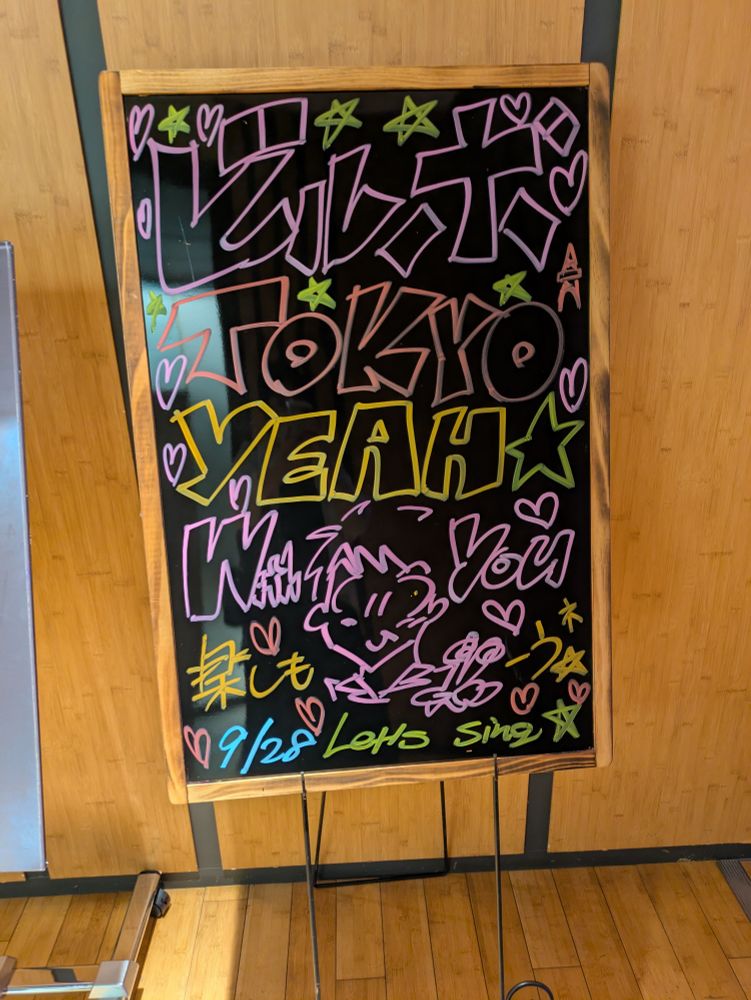 ビルボ
TOKYO
YEAH☆
With You
楽しもーう☆
9/28 Let's Sing☆